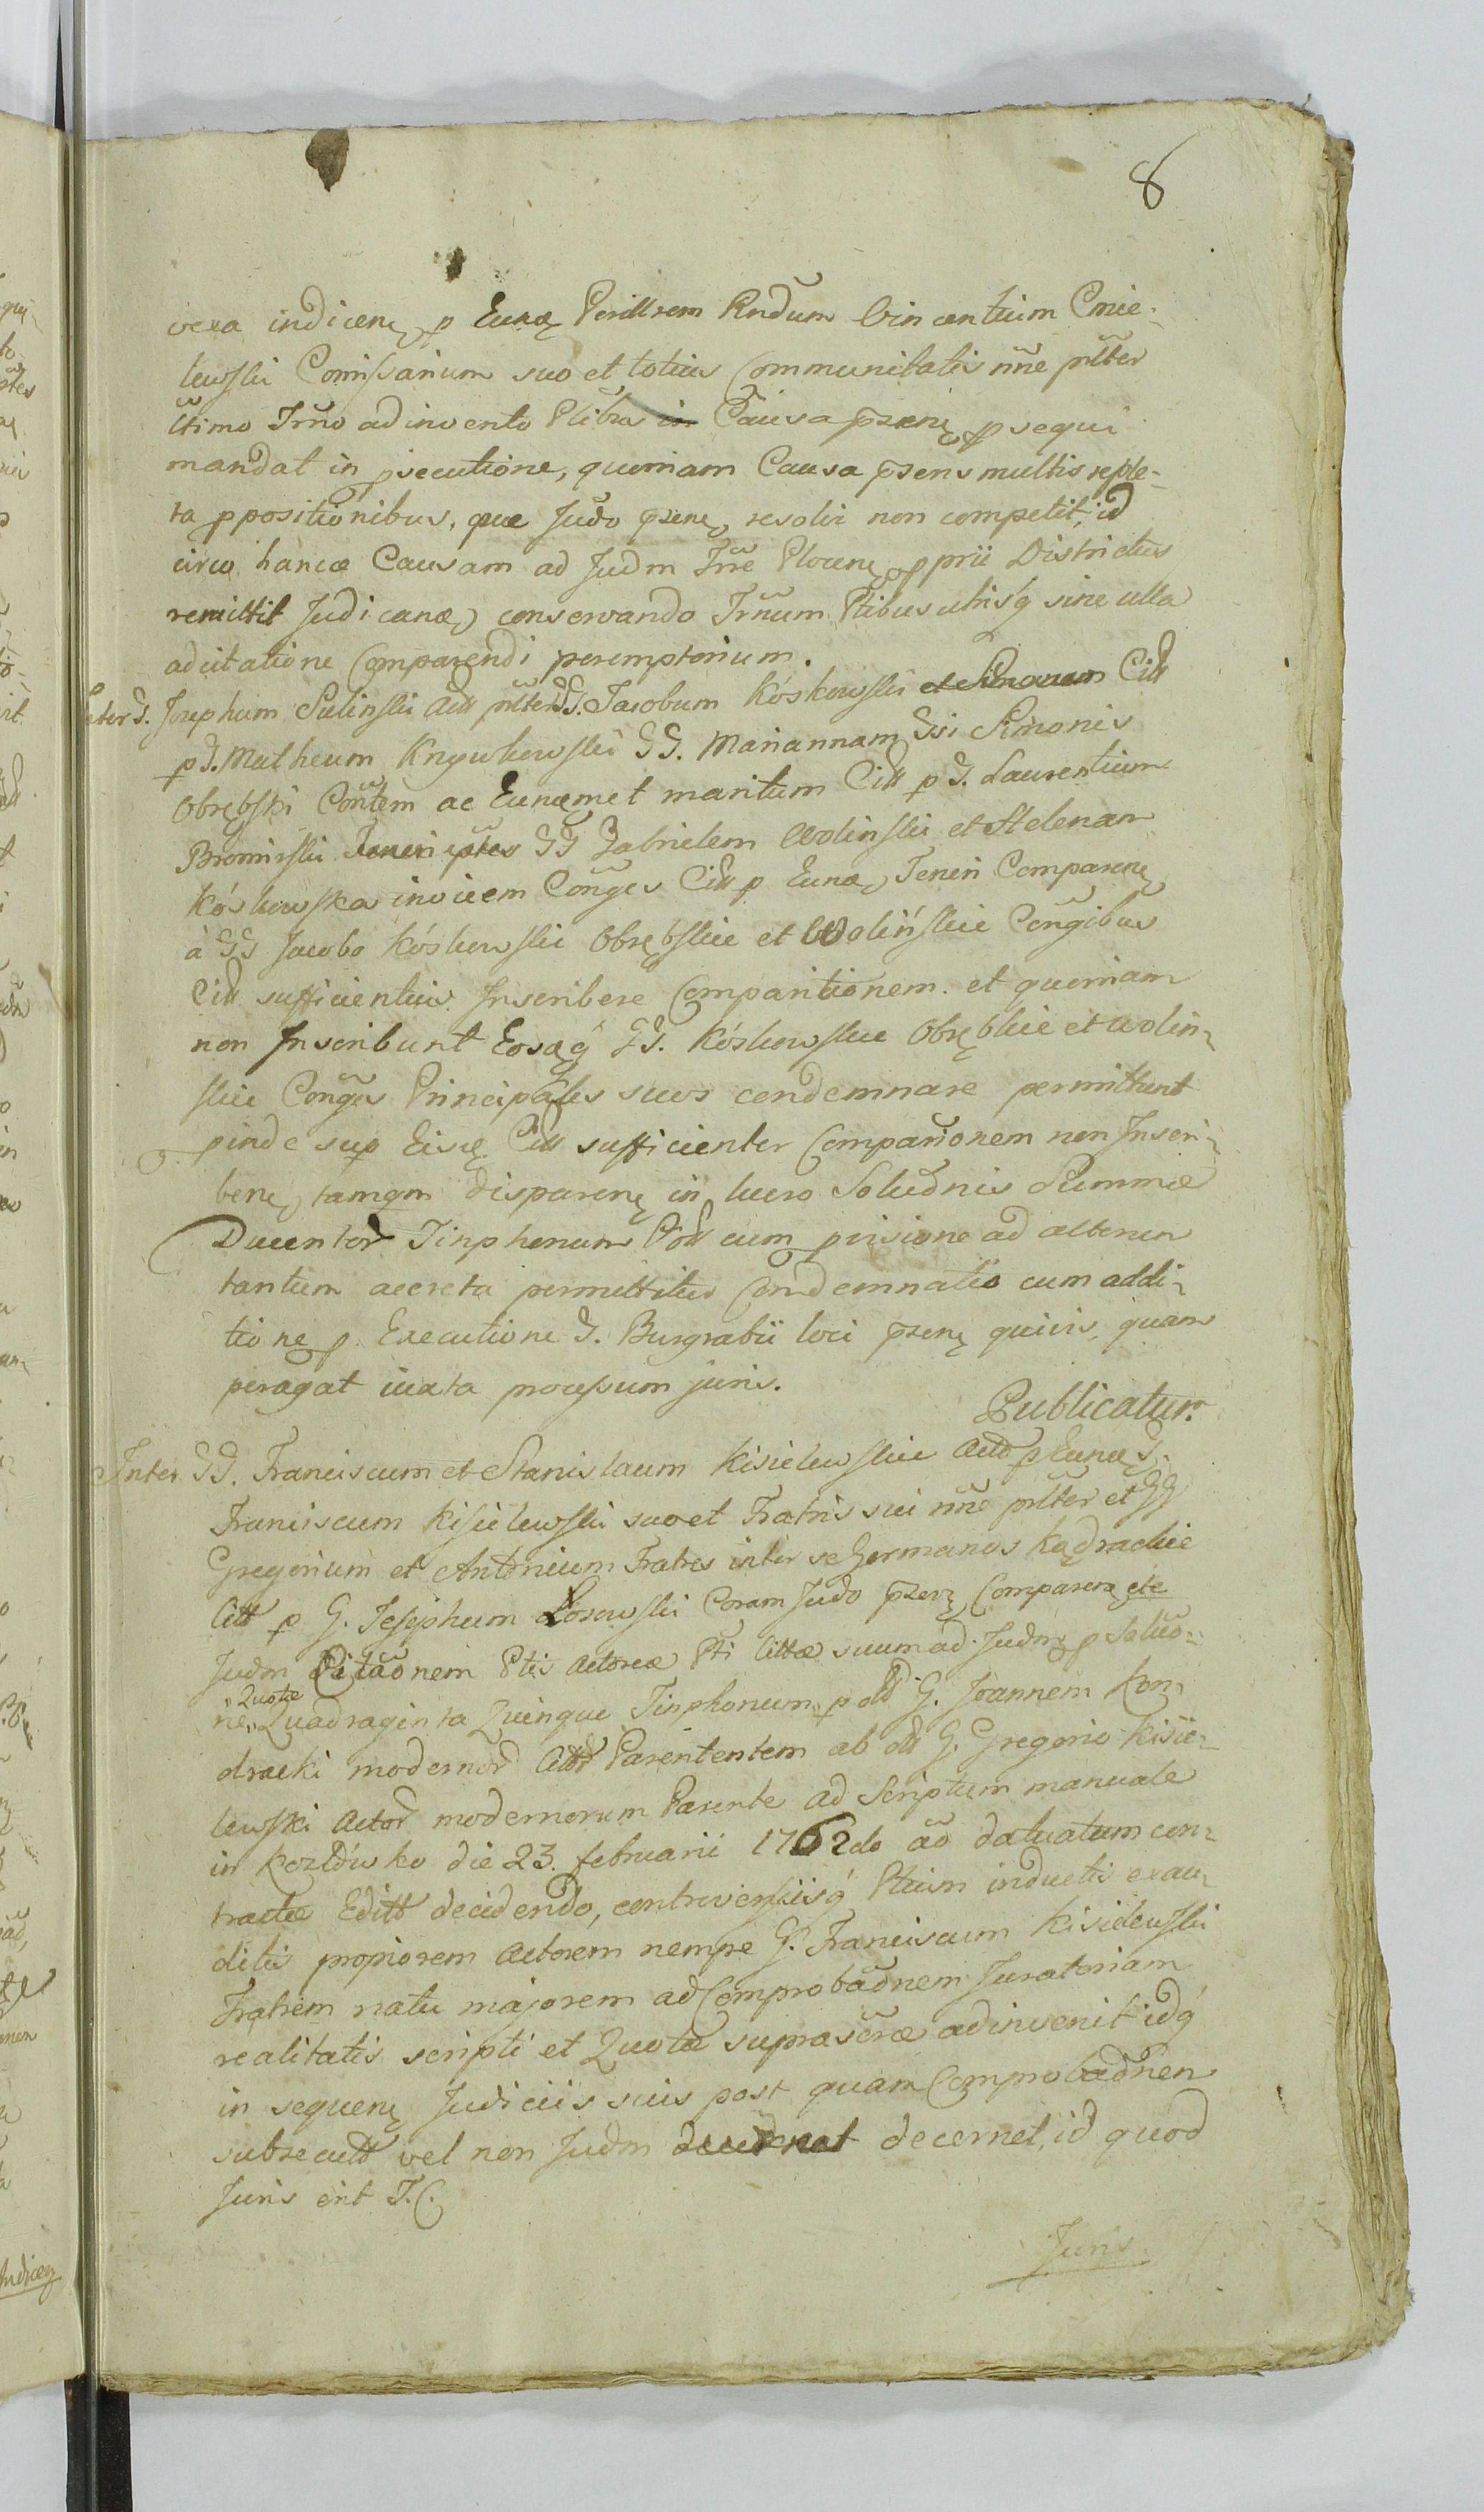 8
vexa indicenę p Eundę Perillrem Rndum Vincentium Cmie-
lewski Comissarium suo et totius Communitatis nne plter
ltimo Trno adinvento Ptibus in Causa pzenę psequi
mandat in psecutione, quoniam Causa pzens multis reple-
ta ppositionibus, quæ Judo pzenę resolvi non competit, id
circo hancæ Causam ad Judm Trre Plocenę pprii Districtus
remittit Judicandę conservando Trnum Ptibus utrisq sine ulla
adcitatione Comparendi peremptorium.
Inter G. Josephum Sulinski Act plter GG. Jacobum Kóskowski et Simonem Citt
p G. Matheum Krzywkowski GG. Mariannam Gsi Simonis
Obrębski Contem ac Eundęmet maritum Citt p G. Laurentium
Bromirski Teneri GG Gabrielem Wolinski et Helenam
Kóskowska invicem Conges Citt p Eundę Teneri Comparenę
à GG Jacobo Kóskowski Obrębskie et Wolińskie Congibus
Citt sufficientius Inscribere Comparitionem. et quoniam
non Inscribunt Eosdęq GG. Kóskowskie Obrębskie et Wolin-
skie Conges Principales suos condemnare permittunt
pinde sup Eisdę Citt sufficienter Comparionem non Inscri-
benę tamqm disparenę in lucro Soludnis Summæ
Ducentor Tinphonum Poll cum pvisione ad alterum
tantum accreta permittitur Condemnatio cum addi-
tionę p Executione G. Burgrabii loci pzenę quivis, quam
peragat iuxta processum juris.
Publicatur.
Inter GG. Franciscum et Stanislaum Kisielewskie Actó p Eundę G.
Franciscum Kisielewski suo et Fratris sui nne plter et GG
Gregorium et Antonium Fratres inter se Germanos Kądrackie
Citt p G. Josephum Losowski Coram Judo pzenę Comparenę etc
Judm Citaonem Ptis Actoreæ Pti Cittæ suum ad Judm p Soluo-
ne Quotæ Quadraginta Quinque Tinphonum p olt G. Joannem Kon-
dracki modernor Citt Parententem ab olt G. Gregorio Kisie-
lewski Actor modernorum Parente ad Scriptum manuale
in Kozłówko die 23. februarii 1762do ao datuatum con-
tractæ Editt decidendo, controversiisq Ptium inductis exau-
ditis propiorem Actorem nempe G. Franciscum Kisielewski
Fratrem natu majorem ad Comprobaonem Juratoriam
realitatis scripti et Quotæ suprascræ adinvenit idq
in sequenę Judiciis suis post quam Comprobaonem
subsecutt vel non Judm decernet, id quod
Juris erit T.C.
Juris